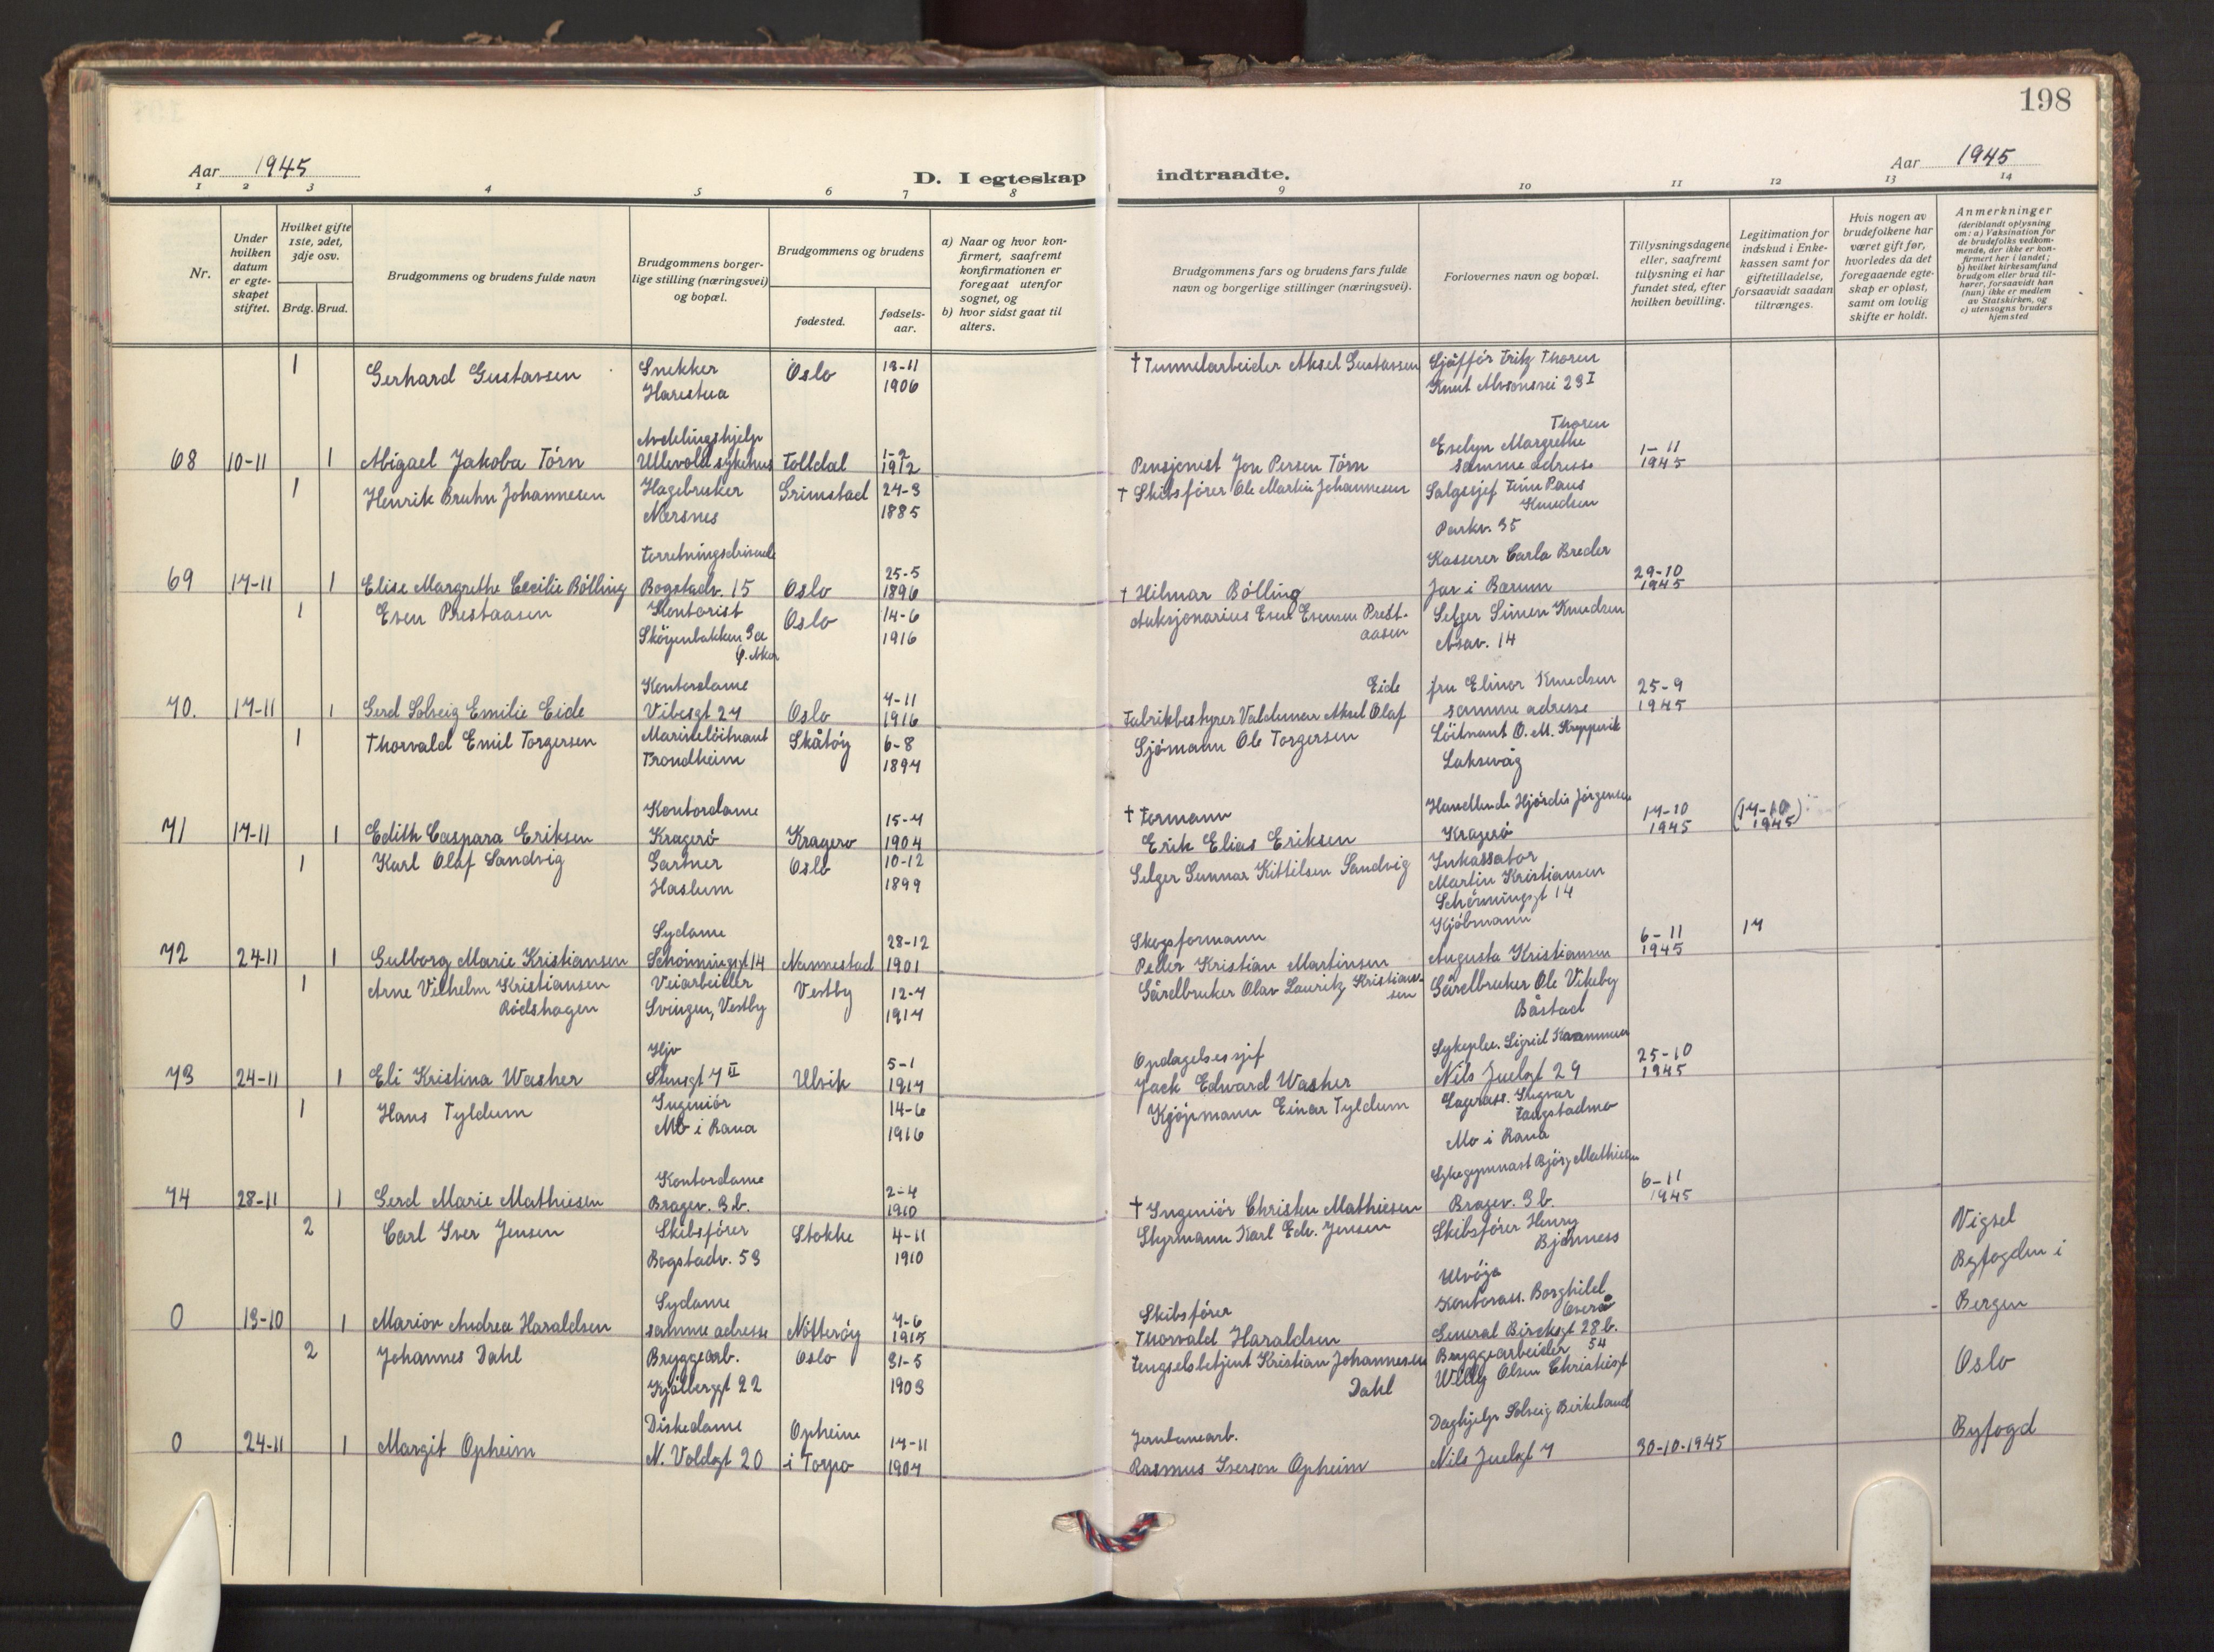 198
Aar 1945
D. I egteskap indtraadte.
Aar 1945
1 2 3 4 5 6 7 8 9 10 11 12 13 14
Nr.
Under hvilken datum er egteskapet stiftet.
Hvilket gifte 1ste, 2det, 3dje osv.
Brdg. Brud.
Brudgommens og brudens fulde navn
Brudgommens borgerlige stilling (næringsvei) og bopæl.
Brudgommens og brudens
fødested.
fødselsaar.
a) Naar og hvor konfirmert, saafremt konfirmationen er foregaat utenfor sognet, og
b) hvor sidst gaat til alters.
Brudgommens fars og brudens fars fulde navn og borgerlige stillinger (næringsvei).
Forlovernes navn og bopæl.
Tillysningsdagene eller, saafremt tillysning ei har fundet sted, efter hvilken bevilling.
Legitimation for indskud i Enkekassen samt for giftetilladelse, forsaavidt saadan tiltrænges.
Hvis nogen av brudefolkene har været gift før, hvorledes da det foregaaende egteskap er opløst, samt om lovlig skifte er holdt.
Anmerkninger (deriblandt oplysning om: a) Vaksination for de brudefolks vedkommende, der ikke er konfirmert her i landet; b) hvilket kirkesamfund brudgom eller brud tilhører, forsaavidt han (hun) ikke er medlem av Statskirken, og c) utensogns bruders hjemsted
1 Gerhard Gustavsen Snekker Harestua Oslo 13-11 1906 † Tunnelarbeider Aksel Gustavsen Sjåffør Fritz Thoren Knut Alvsonsvei 23 I
68 10-11 1 Abigael Jakoba Törn Avdelingshjelp Ullevold sykehus Tolldal 1-2 1912 Pensjonist Jon Persen Törn Thoren Evelyn Margrethe samme adresse 1-11 1945
1 Henrik Bruhn Johannesen Hagebruker Nersnes Grimstad 24-3 1885 † Skibsförer Ole Martin Johannesen Salgssjef Finn Paus Knudsen Parkv. 35
69 17-11 1 Elise Margrethe Cecilie Bölling Forretningsdrivende Bogstadv. 15 Oslo 25-5 1896 † Hilmar Bölling Kasserer Carla Breder Jar i Bærum 29-10 1945
1 Even Prestaasen Kontorist Sköyenbakken 3a Ö. Aker Oslo 14-6 1916 Auksjonarius Even Evensen Prestaasen Selger Simen Knudsen Asav. 14
70. 17-11 1 Gerd Solveig Emilie Eide Kontordame Vibesgt 27 Oslo 7-11 1916 Fabrikbestyrer Valdemar Aksel Olaf Eide fru Elinor Knudsen samme adresse 25-9 1945
1 Thorvald Emil Torgersen Marinelöitnant Trondheim Skåtöy 6-8 1894 Sjömann Ole Torgersen Löitnant O. M. Laksevåg
71 17-11 1 Edith Caspara Eriksen Kontordame Kragerö Kragerø 15-7 1904 † Formann Erik Elias Eriksen Hjördis Jörgensen Kragerö 17-10 1945 (17-10 1945)
1 Karl Olaf Sandvig Gartner Haslum Oslo 10-12 1899 Selger Gunnar Kittilsen Sandvig Inkassator Martin Kristiansen Schönningsgt 14
72 24-11 1 Gulborg Marie Kristiansen Sydame Schönningsgt 14 Nannestad 28-12 1901 Skogsformann Peder Kristian Martinsen Kjöbmann Augusta Kristiansen 6-11 1945 17
1 Arne Vilhelm Kristiansen Rödshagen Veiarbeider Svingen, Vestby Vestby 12-7 1917 Gårdbruker Olav Lauritz Kristiansen Gårdbruker Ole Vikeby Båstad
73 24-11 1 Eli Kristina Washer Hjv Stensgt 7 II Ulvik 5-1 1917 Opdagelsessjef Jack Edward Washer Sykeplei. Sigrid Nils Juelsgt 29 25-10 1945
1 Hans Tyldum Ingeniör Mo i Rana 14-6 1916 Kjöpmann Einar Tyldum Lagerass. Ingvar Langstadmo Mo i Rana
74 28-11 1 Gerd Marie Mathiesen Kontordame Bragev. 3 b. 2-4 1910 † Ingeniör Christen Mathiesen Sykegymnast Björg Mathiesen Bragev. 3 b. 6-11 1945
2 Carl Iver Jensen Skibsförer Bogstadv. 53 Stokke 4-11 1910 Styrmann Karl Edv. Jensen Skibsförer Henry Bjønness Ulvöya Vigsel Byfogden i Bergen
0 13-10 1 Marion Andrea Haraldsen Sydame samme adresse Nötteröy 7-6 1915 Skibsförer Thorvald Haraldsen Kontorass. Borghild General Birchsgt 28 b.
2 Johannes Dahl Bryggearb. Kjölberggt 22 Oslo 31-5 1903 Fengselsbetjent Kristian Johannesen Dahl Bryggearbeider Willy Olsen Christiesgt 54 Oslo Byfogd
0 24-11 1 Margit Opheim Diskedame N. Voldgt 20 Opheim i Torpo 17-11 1907 Jernbanearb. Rasmus Iverson Opheim Daghjelp Solveig Birkeland Nils Juelsgt 7 30-10-1945